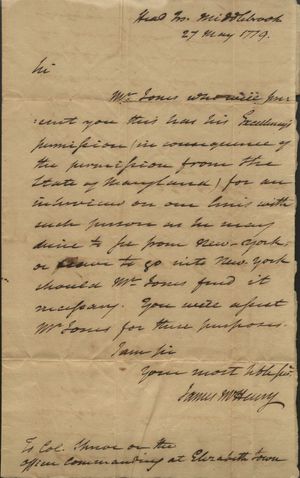 Head Qrs. Middlebrook
27 May 1779.
Sir
Mr. Jones who will pre-
-sent you this has his Excellency's
permission (in consequence of
the permission from the
State of Maryland) for an
interview on our lines with
such person as he may
desire to see from New-York,
or leave to go into New York
should Mr. Jones find it
necessary. You will assist
Mr Jones for these purposes.
I am Sir
Your most hble Sr.
James McHenry
To Col. Shreve or the
officer commanding at Elizabeth Town